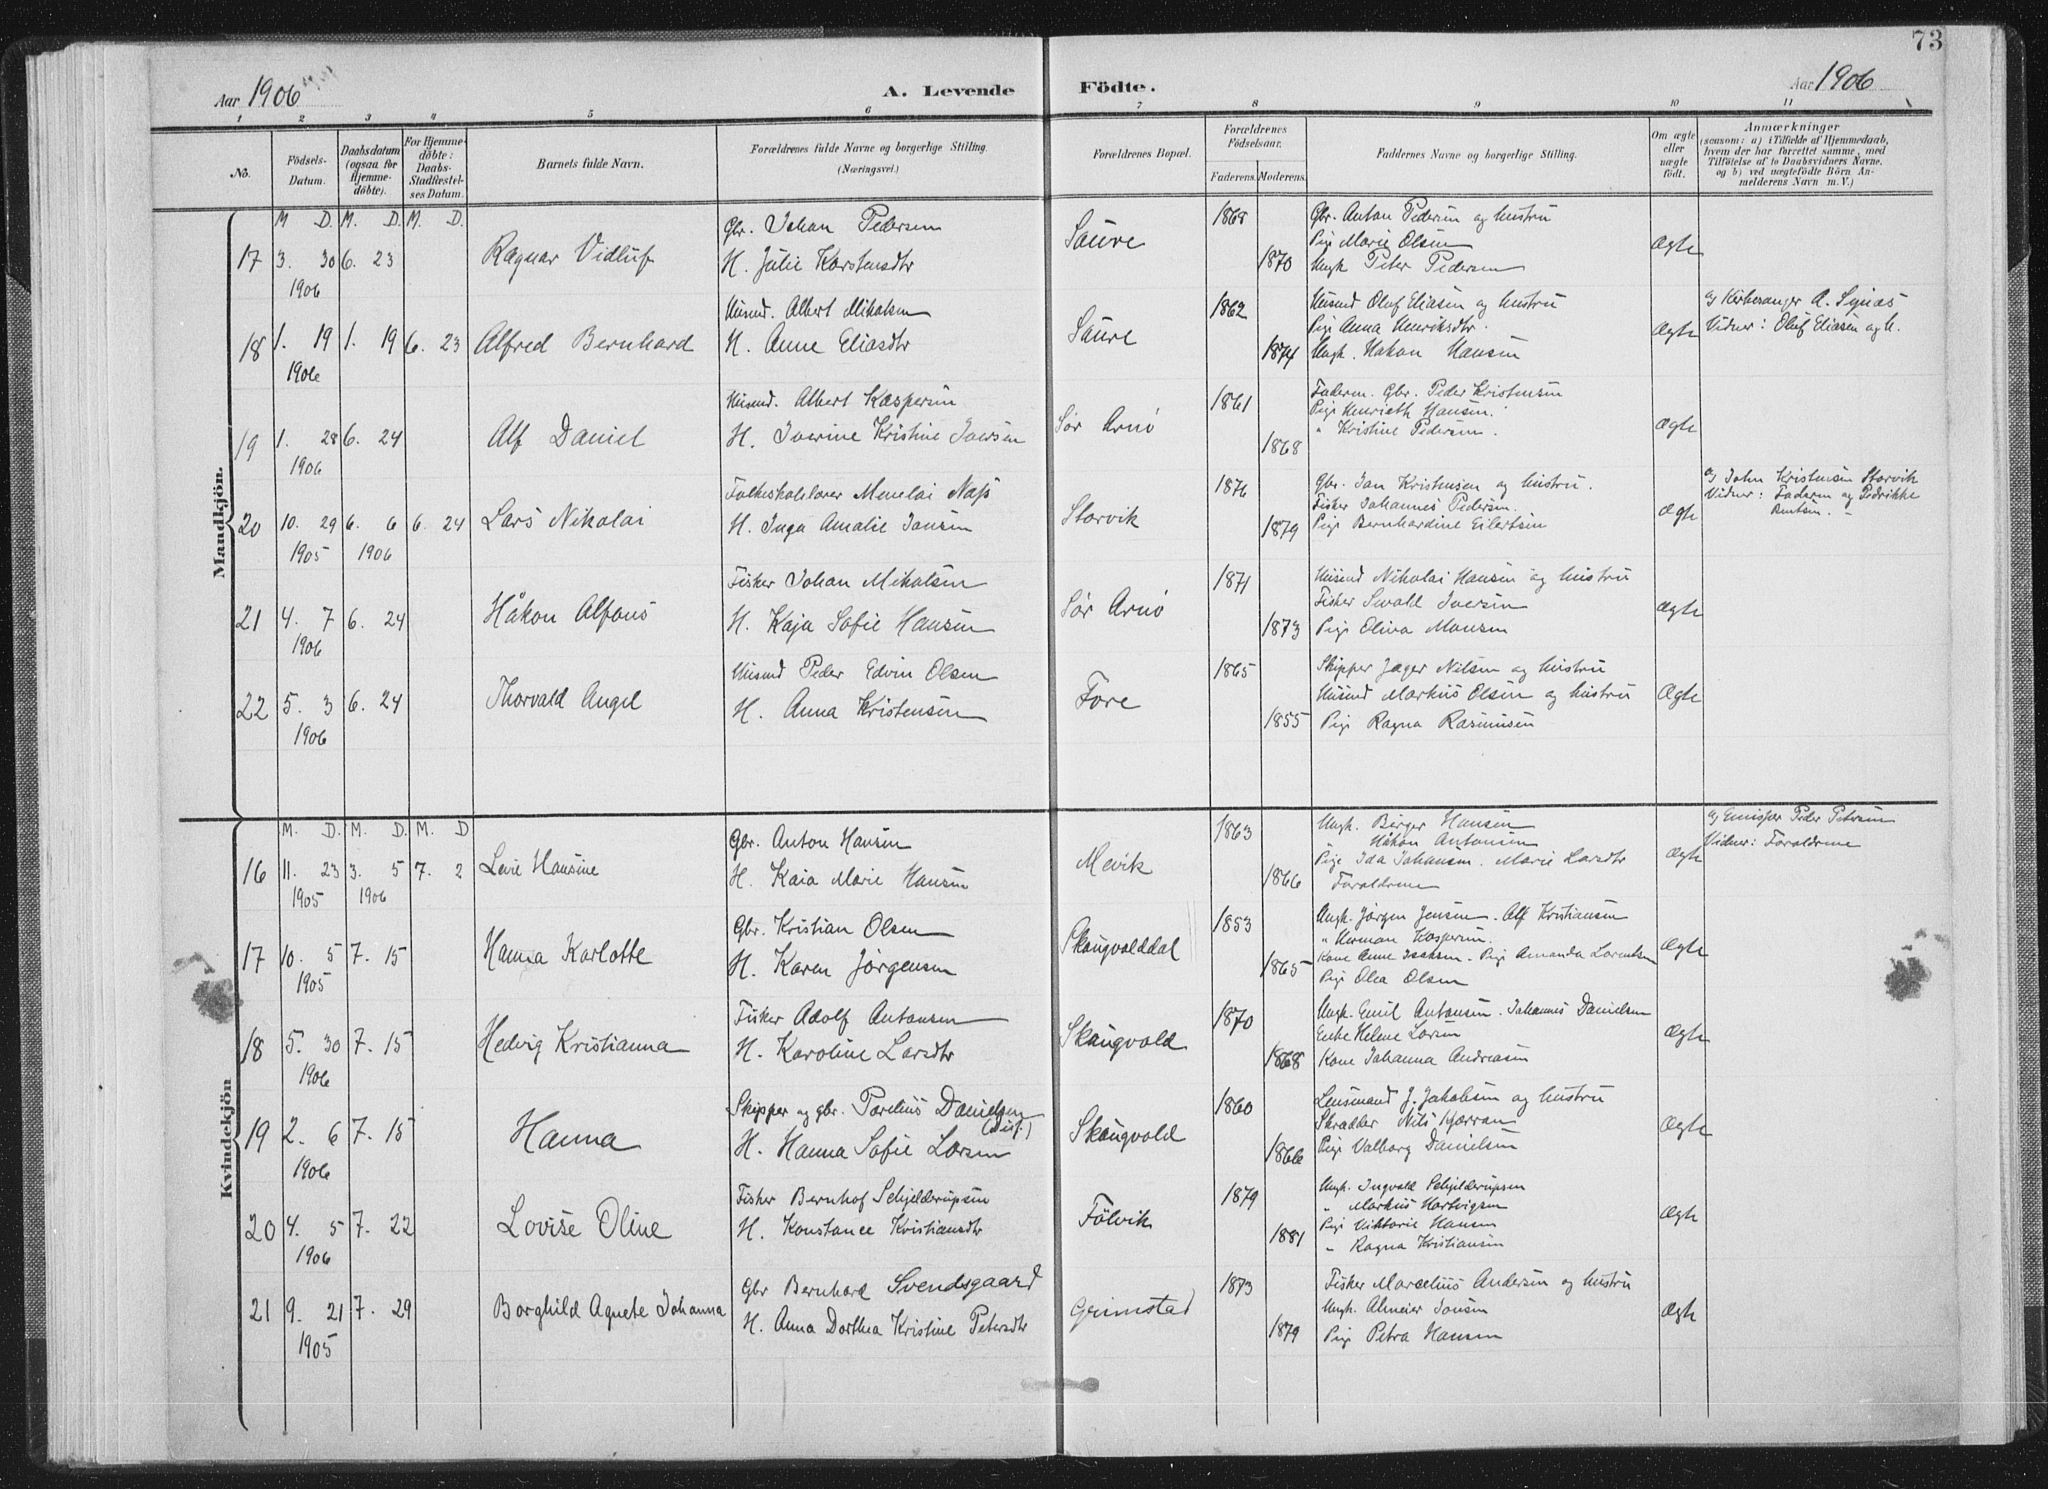 73
Aar 1906
A. Levende
Födte.
Aar 1906
1 2 3 4 5 6 7 8 9 10 11
No.
Födsels-Datum.
Daabsdatum (ogsaa for Hjemme-döbte).
For Hjemme-döbte: Daabs-Stadfæstel-ses Datum.
Barnets fulde Navn.
Forældrenes fulde Navne og borgerlige Stilling.
(Næringsvei.)
Forældrenes Bopæl.
Forældrenes Födselsaar.
Faderens. Moderens.
Faddernes Navne og borgerlige Stilling.
Om ægte eller uægte födt.
Anmærkninger
(saasom: a) i Tilfælde af Hjemmedaab,
hvem der har forrettet samme, med
Tilföielse af to Daabsvidners Navne,
og b) ved uægtefödte Börn An-
melderens Navn m. V.)
Mandkjön.
M. D. M. D. M. D.
Gbr. Johan Pedersen
1868
Gbr. Anton Pedersen og hustru
Pige Marie Olsen
17 3. 30 6. 23 Ragnar Vidluf H. Julie Karstensdtr Saure 1870 Ungk Peter Pedersen Ægte
1906
Husmd. Albert Mikalsen
1862
Husmd Oluf Eliasen og hustru
a) Kirkesanger A. Synæs
Pige Anna Henriksdtr.
Vidner: Oluf Eliasen og h.
18 1. 19 1. 19 6. 23 Alfred Bernhard H. Anne Eliasdtr Saure 1874 Ungk. Hakon Hansen Ægte
1906
Husmd. Albert Kaspersen
1861
Faderen. Gbr. Peder Kristensen
Pige Henrieth Hansen.
19 1. 28 6. 24 Alf Daniel H. Iverine Kristine Iversen Sør Arnø 1868 " Kristine Pedersen. Ægte
1906
Folkeskolelærer Menelai Næss
1876
Gbr. Jan Kristensen og hustru.
a) John Kristensen Storvik
Fisker Johannes Pedersen.
Vidner: Faderen og Fredrikke
Bentsen.
20 10. 29 6. 6 6. 24 Lars Nikolai H. Inga Amalie Jansen Storvik 1879 Pige Bernhardine Eilertsen Ægte
1905 1906
Fisker Johan Mikalsen
1871
Husmd Nikolai Hansen og hustru
Fisker Iversen
21 4. 7 6. 24 Håkon Alfons H. Kaja Sofie Hansen Sør Arnø 1873 Pige Oliva Monsen Ægte
1906
Husmd Peder Edvin Olsen
1865
Skipper Jæger Nilsen og hustru
Husmd Markus Olsen og hustru
22 5. 3 6. 24 Thorvald Angel H. Anna Kristensen Fore 1855 Pige Ragna Rasmusen Ægte
1906
Kvindekjön
M. D. M. D. M. D
Gbr. Anton Hansen
1863
Ungk. Birger Hansen
" Håkon Antonsen
a) Emissær Peder Petersen
Vidner: Forældrene
Pige Ida Johansen. Marie Larsdtr
16 11. 23 3. 5 7. 2 Hansine H. Kaia Marie Hansen Mevik 1866 Forældrene Ægte
1905 1906
Gbr. Kristian Olsen
1853
Ungk. Jørgen Jensen. Alf Kristiansen
" Herman Kaspersen.
Kone Anne Isaksen. Pige Amanda Lorentsen
17 10. 5 7. 15 Hanna Karlotte H. Karen Jørgensen Skaugvolddal 1865 Pige Olea Olsen Ægte
1905
Fisker Adolf Antonsen
1870
Ungk. Emil Antonsen. Johannes Danielsen
Enke Helene Larsen
18 5. 30 7. 15 Hedvig Kristianna H. Karoline Larsdtr Skaugvold 1868 Kone Johanna Andreasen Ægte
1906
Skipper og gbr. Parelius Danielsen
1860
Lensmand J. Jakobsen og hustru
Skrædder Nils Hjarran
19 2. 6 7. 15 Hanna H. Hanna Sofie Larsen Skaugvold 1866 Pige Valborg Danielsen Ægte
1906
Fisker Bernhof Schjelderupsen
1879
Ungk. Ingvald Schjelderupsen
" Markus Hartvigsen
Pige Viktorie Hansen
20 4. 5 7. 22 Lovise Oline H. Konstance Kristiansdtr Fölvik 1881 " Ragna Kristiansen Ægte
1906
Gbr Bernhard Svendsgaard
1873
Fisker Marcelius Andersen og hustru
Ungk. Almeier Jonsen
21 9. 21 7. 29 Borghild Agnete Johanna H. Anna Dorthea Kristine Petersdtr Grimstad 1879 Pige Petra Hansen Ægte
1905